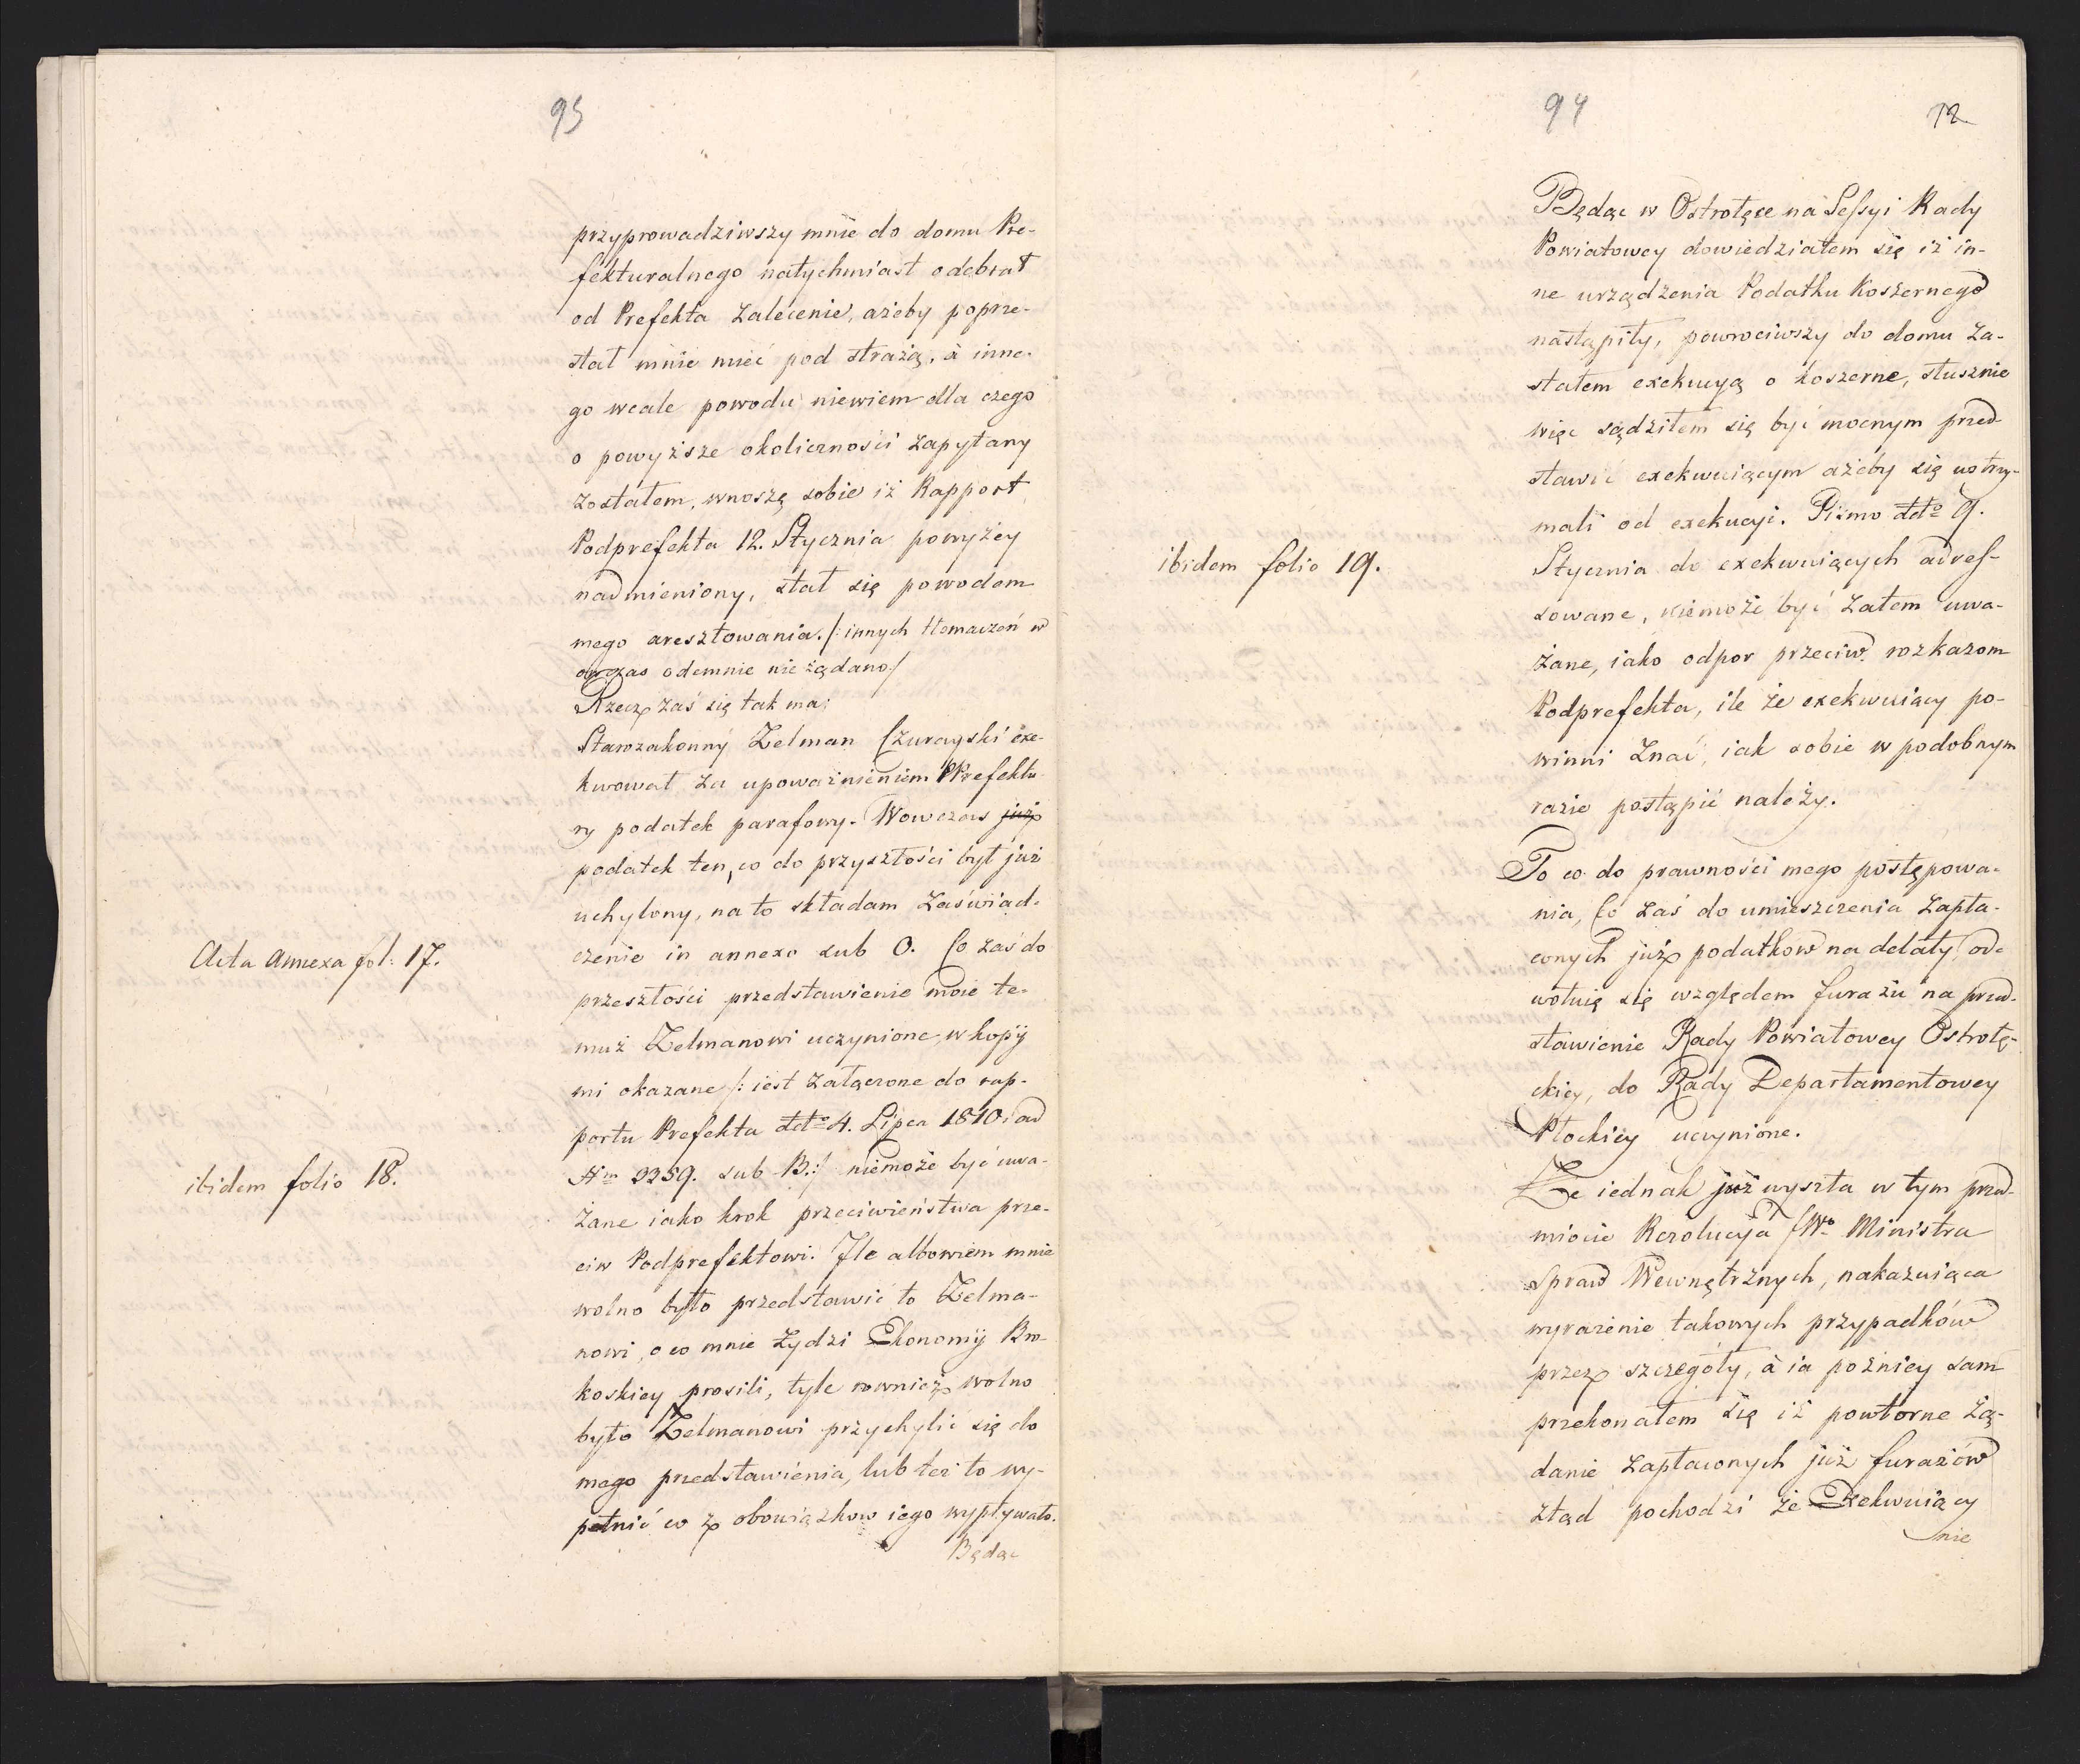 93
przyprowadziwszy mnie do domu Pre-
fekturalnego natychmiast odebrał
od Prefekta zalecenie, ażeby poprze-
stał mnie mieć pod strażą, à inne-
go wcale powodu niewiem dla czego
o powyższe okoliczności zapytany
zostałem, wnoszę sobie iż Rapport
Podprefekta 12. Stycznia powyżey
nadmieniony, stał się powodem
mego aresztowania. /: innych tłomaczeń w
ówczas odemnie nie żądano /
Rzecz zaś się tak ma:
Starozakonny Zelman Czurayski exe-
kwował za upoważnieniem Prefektu-
ry podatek parafowy. Wowczas już
podatek ten, co do przyszłości był już
uchylony, na to składam zaświad-
Acta Annexa fol: 17.
czenie in annexo sub O. Co zaś do
przeszłości przedstawienie moie te-
muż Zelmanowi uczynione w kopij
mi okazane /: iest załączone do rap-
portu Prefekta ddto 4. Lipca 1810 ad
ibidem folio 18.
Nm 2259. sub B. :/ niemoże być uwa-
żane iako krok przeciwieństwa prze-
ciw Podprefektowi. Ile albowiem mnie
wolno było przedstawić to Zelma-
nowi, o co mnie Żydzi Ekonomij Bro-
koskiey prosili, tyle rownież wolno
było Zelmanowi przychylić się do
mego przedstawienia, lub też to wy-
pełnić co z obowiązkow iego wypływało.
Będąc
94
72
Będąc w Ostrołęce na Sessyi Rady
Powiatowey dowiedziałem się iż in-
ne urządzenia Podatku Koszernego
nastąpiły, powrociwszy do domu za-
stałem exekucyą o koszerne, słusznie
więc sądziłem się być mocnym przed-
stawić exekwuiącym ażeby się wstrzy-
mali od exekucyi. Pismo ddto 9.
ibidem folio 19.
Stycznia do exekwuiących adres-
sowane, niemoże być zatem uwa-
żane, iako odpor przeciw rozkazom
Podprefekta, ile że exekwuiący po-
winni znać, iak sobie w podobnym
razie postąpić należy.
To co do prawności mego postępowa-
nia, Co zaś do umieszczenia zapła-
conych już podatkow na delaty, od-
wołuię się względem furażu na przed-
stawienie Rady Powiatowey Ostrołę-
ckiey, do Rady Departamentowey
Płockiey uczynione.
Że iednak już wyszła w tym przed-
miocie Rezolucya JWo Ministra
Spraw Wewnętrznych, nakazuiąca
wyrażenie takowych przypadków
przez szczegóły, à ia pozniey sam
przekonałem się iż powtorne żą-
danie zapłaconych już furażów
ztąd pochodzi że Exekwuiący
nie